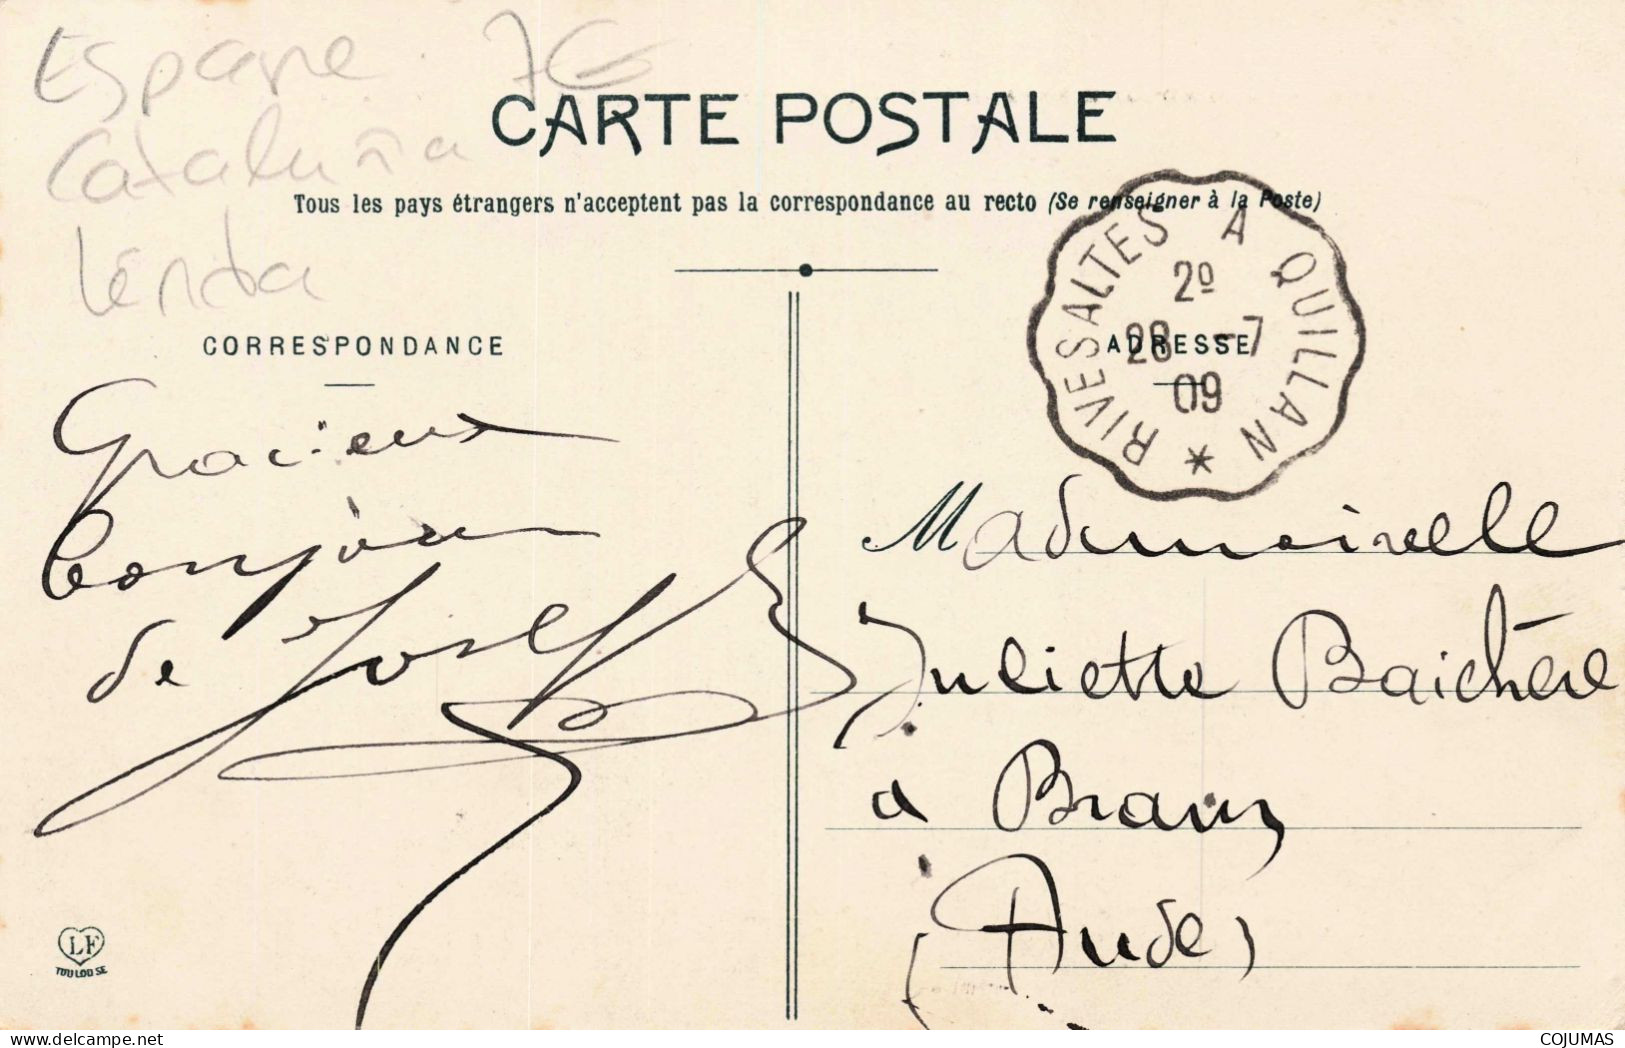 Espane 76
Cataluña
Lérida
CARTE POSTALE
Tous les pays étrangers n'acceptent pas la correspondance au recto (Se renseigner à la Poste)
RIVESALTES A QUILLAN *
2º
28 -7
09
CORRESPONDANCE
ADRESSE
Gracieux
bonjour
de Joseph
Mademoiselle
Juliette Baichère
à Bram
(Aude)
LF
TOULOUSE
COJUMAS